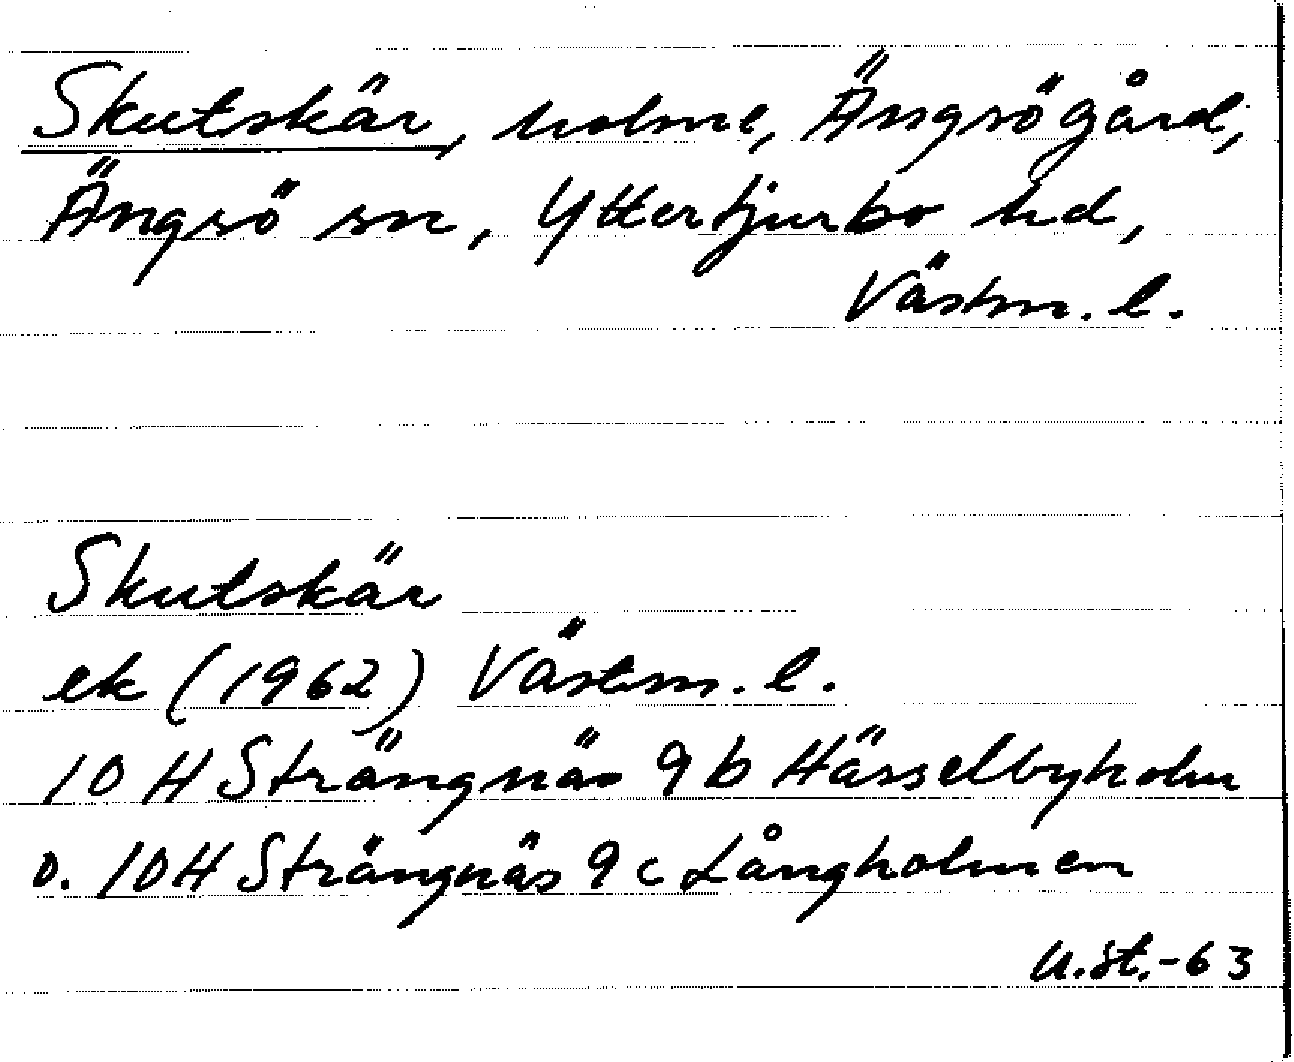 Skutskär, holme, Ängsögård,
Ängsö sn, Yttertjurbo hd,
Västm. l.
Skutskär
ek (1962) Västm. l.
10 H Strängnäs 9 b Hässelbyholm
o. 10 H Strängnäs 9 c Långholmen
U.St.-63